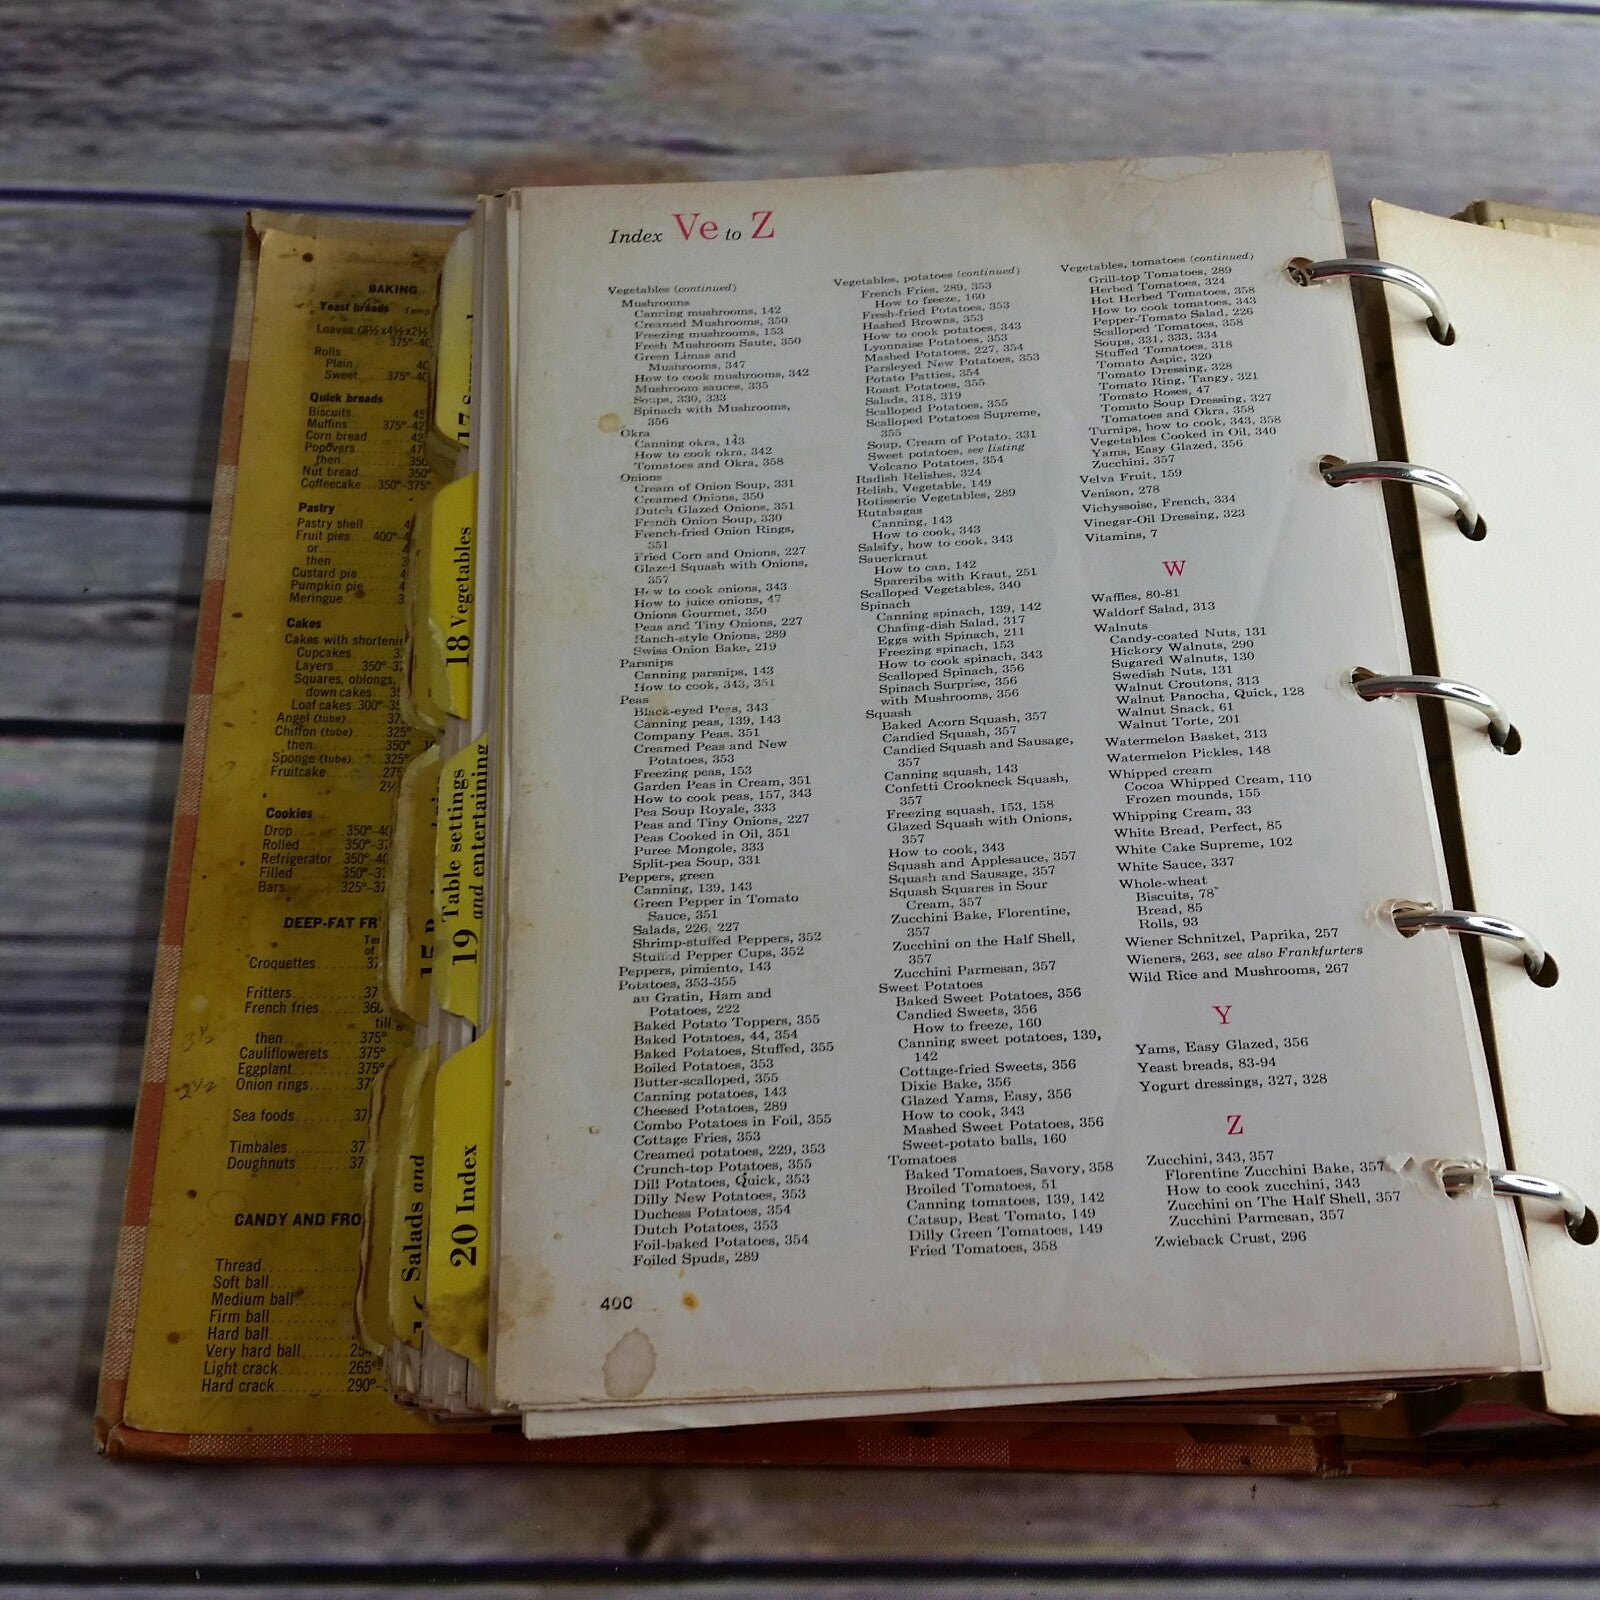 BAKING
Yeast breads Temp
Loaves (8½x4½x2½
375°-40
Rolls
Plain 40
Sweet 375°-40
Quick breads
Biscuits 45
Muffins 375°-42
Corn bread 42
Popovers 47
then 350
Nut bread 350°
Coffeecake 350°-375°
Pastry
Pastry shell 4
Fruit pies 400°-4
or 4
then 3
Custard pie 4
Pumpkin pie 4
Meringue 3
Cakes
Cakes with shortenin
Cupcakes 3
Layers 350°-37
Squares, oblongs,
down cakes 35
Loaf cakes 300°-35
Angel (tube) 37
Chiffon (tube) 325°
then 350°
Sponge (tube) 325°
Fruitcake 275
2½
Cookies
Drop 350°-40
Rolled 350°-37
Refrigerator 350°-40
Filled 350°-37
Bars 325°-37
DEEP-FAT FR
Te
of
Croquettes 37
Fritters 37
French fries 360
till g
then 375°
Cauliflowerets 375°
Eggplant 375°
Onion rings 37
Sea foods 37
Timbales 37
Doughnuts 37
3½
2½
CANDY AND FRO
Thread
Soft ball
Medium ball
Firm ball
Hard ball
Very hard ball 254
Light crack 265°-
Hard crack 290°-3
17
18 Vegetables
15
19 Table settings
and entertaining
Salads and
20 Index
Index Ve to Z
Vegetables (continued)
Mushrooms
Canning mushrooms, 142
Creamed Mushrooms, 350
Freezing mushrooms, 153
Fresh Mushroom Saute, 350
Green Limas and
Mushrooms, 347
How to cook mushrooms, 342
Mushroom sauces, 335
Soups, 330, 333
Spinach with Mushrooms,
356
Okra
Canning okra, 143
How to cook okra, 342
Tomatoes and Okra, 358
Onions
Cream of Onion Soup, 331
Creamed Onions, 350
Dutch Glazed Onions, 351
French Onion Soup, 330
French-fried Onion Rings,
351
Fried Corn and Onions, 227
Glazed Squash with Onions,
357
How to cook onions, 343
How to juice onions, 47
Onions Gourmet, 350
Peas and Tiny Onions, 227
Ranch-style Onions, 289
Swiss Onion Bake, 219
Parsnips
Canning parsnips, 143
How to cook, 343, 351
Peas
Black-eyed Peas, 343
Canning peas, 139, 143
Company Peas, 351
Creamed Peas and New
Potatoes, 353
Freezing peas, 153
Garden Peas in Cream, 351
How to cook peas, 157, 343
Pea Soup Royale, 333
Peas and Tiny Onions, 227
Peas Cooked in Oil, 351
Puree Mongole, 333
Split-pea Soup, 331
Peppers, green
Canning, 139, 143
Green Pepper in Tomato
Sauce, 351
Salads, 226, 227
Shrimp-stuffed Peppers, 352
Stuffed Pepper Cups, 352
Peppers, pimiento, 143
Potatoes, 353-355
au Gratin, Ham and
Potatoes, 222
Baked Potato Toppers, 355
Baked Potatoes, 44, 354
Baked Potatoes, Stuffed, 355
Boiled Potatoes, 353
Butter-scalloped, 355
Canning potatoes, 143
Cheesed Potatoes, 289
Combo Potatoes in Foil, 355
Cottage Fries, 353
Creamed potatoes, 229, 353
Crunch-top Potatoes, 355
Dill Potatoes, Quick, 353
Dilly New Potatoes, 353
Duchess Potatoes, 354
Dutch Potatoes, 353
Foil-baked Potatoes, 354
Foiled Spuds, 289
400
Vegetables, potatoes (continued)
French Fries, 289, 353
How to freeze, 160
Fresh-fried Potatoes, 353
Hashed Browns, 353
How to cook potatoes, 343
Lyonnaise Potatoes, 353
Mashed Potatoes, 227, 354
Parsleyed New Potatoes, 353
Potato Patties, 354
Roast Potatoes, 355
Salads, 318, 319
Scalloped Potatoes, 355
Scalloped Potatoes Supreme,
355
Soup, Cream of Potato, 331
Sweet potatoes, see listing
Volcano Potatoes, 354
Radish Relishes, 324
Relish, Vegetable, 149
Rotisserie Vegetables, 289
Rutabagas
Canning, 143
How to cook, 343
Salsify, how to cook, 343
Sauerkraut
How to can, 142
Spareribs with Kraut, 251
Scalloped Vegetables, 340
Spinach
Canning spinach, 139, 142
Chafing-dish Salad, 317
Eggs with Spinach, 211
Freezing spinach, 153
How to cook spinach, 343
Scalloped Spinach, 356
Spinach Surprise, 356
with Mushrooms, 356
Squash
Baked Acorn Squash, 357
Candied Squash, 357
Candied Squash and Sausage,
357
Canning squash, 143
Confetti Crookneck Squash,
357
Freezing squash, 153, 158
Glazed Squash with Onions,
357
How to cook, 343
Squash and Applesauce, 357
Squash and Sausage, 357
Squash Squares in Sour
Cream, 357
Zucchini Bake, Florentine,
357
Zucchini on the Half Shell,
357
Zucchini Parmesan, 357
Sweet Potatoes
Baked Sweet Potatoes, 356
Candied Sweets, 356
How to freeze, 160
Canning sweet potatoes, 139,
142
Cottage-fried Sweets, 356
Dixie Bake, 356
Glazed Yams, Easy, 356
How to cook, 343
Mashed Sweet Potatoes, 356
Sweet-potato balls, 160
Tomatoes
Baked Tomatoes, Savory, 358
Broiled Tomatoes, 51
Canning tomatoes, 139, 142
Catsup, Best Tomato, 149
Dilly Green Tomatoes, 149
Fried Tomatoes, 358
Vegetables, tomatoes (continued)
Grill-top Tomatoes, 289
Herbed Tomatoes, 324
Hot Herbed Tomatoes, 358
How to cook tomatoes, 343
Pepper-Tomato Salad, 226
Scalloped Tomatoes, 358
Soups, 331, 333, 334
Stuffed Tomatoes, 318
Tomato Aspic, 320
Tomato Dressing, 328
Tomato Ring, Tangy, 321
Tomato Roses, 47
Tomato Soup Dressing, 327
Tomatoes and Okra, 358
Turnips, how to cook, 343, 358
Vegetables Cooked in Oil, 340
Yams, Easy Glazed, 356
Zucchini, 357
Velva Fruit, 159
Venison, 278
Vichyssoise, French, 334
Vinegar-Oil Dressing, 323
Vitamins, 7
W
Waffles, 80-81
Waldorf Salad, 313
Walnuts
Candy-coated Nuts, 131
Hickory Walnuts, 290
Sugared Walnuts, 130
Swedish Nuts, 131
Walnut Croutons, 313
Walnut Panocha, Quick, 128
Walnut Snack, 61
Walnut Torte, 201
Watermelon Basket, 313
Watermelon Pickles, 148
Whipped cream
Cocoa Whipped Cream, 110
Frozen mounds, 155
Whipping Cream, 33
White Bread, Perfect, 85
White Cake Supreme, 102
White Sauce, 337
Whole-wheat
Biscuits, 78
Bread, 85
Rolls, 93
Wiener Schnitzel, Paprika, 257
Wieners, 263, see also Frankfurters
Wild Rice and Mushrooms, 267
Y
Yams, Easy Glazed, 356
Yeast breads, 83-94
Yogurt dressings, 327, 328
Z
Zucchini, 343, 357
Florentine Zucchini Bake, 357
How to cook zucchini, 343
Zucchini on The Half Shell, 357
Zucchini Parmesan, 357
Zwieback Crust, 296